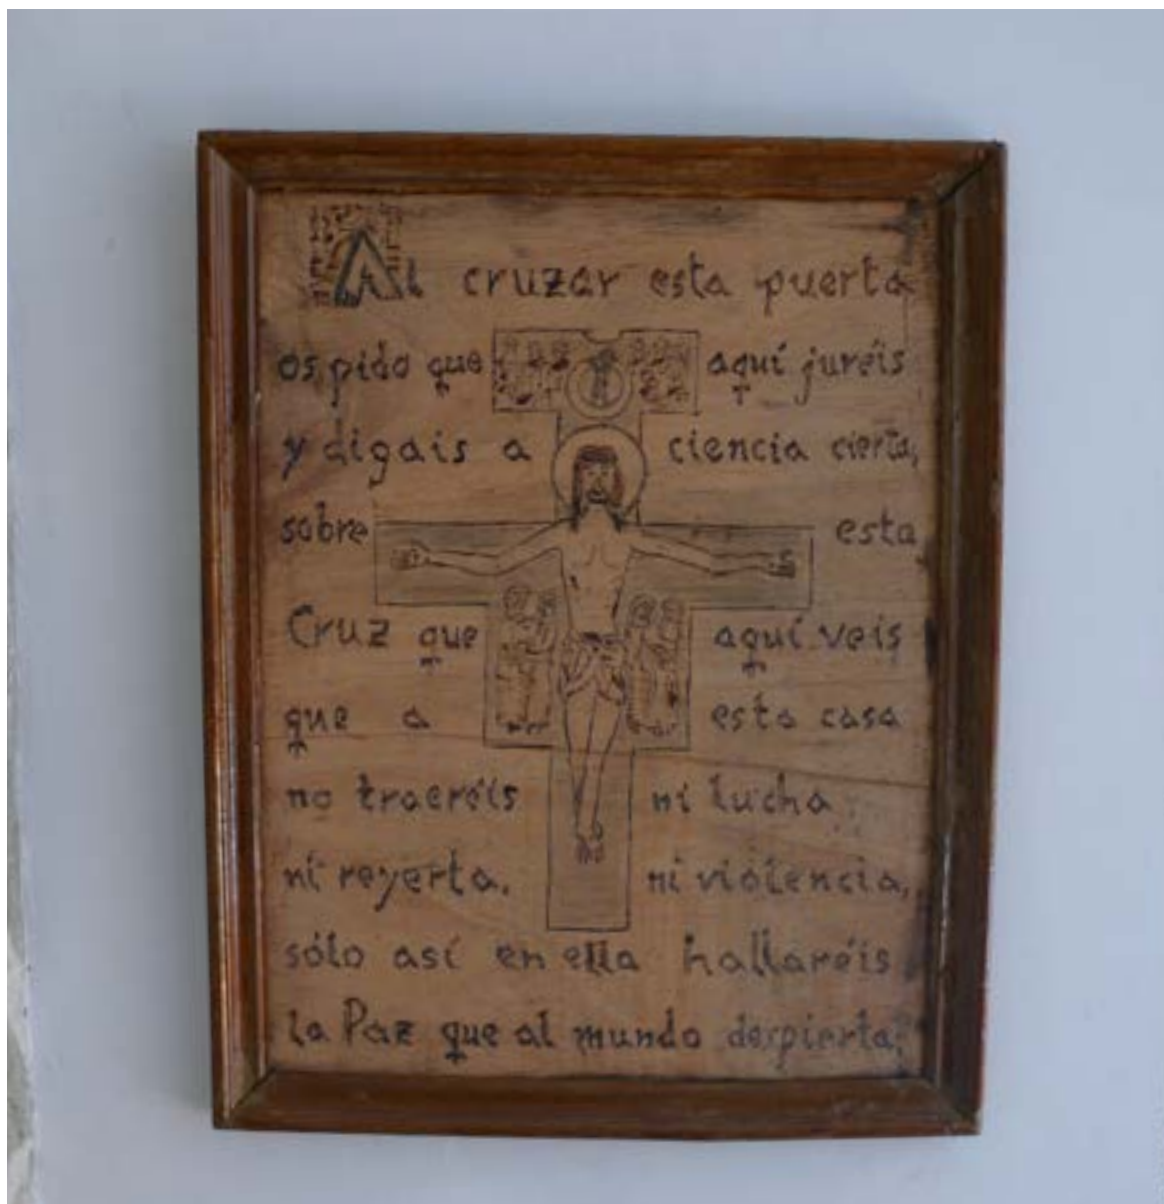 Al cruzar esta puerta
os pido que aquí juréis
y digais a ciencia cierta,
sobre esta
Cruz que aquí veis
que a esta casa
no traeréis ni lucha
ni reyerta, ni violencia,
sólo así en ella hallaréis
la Paz que al mundo despierta.